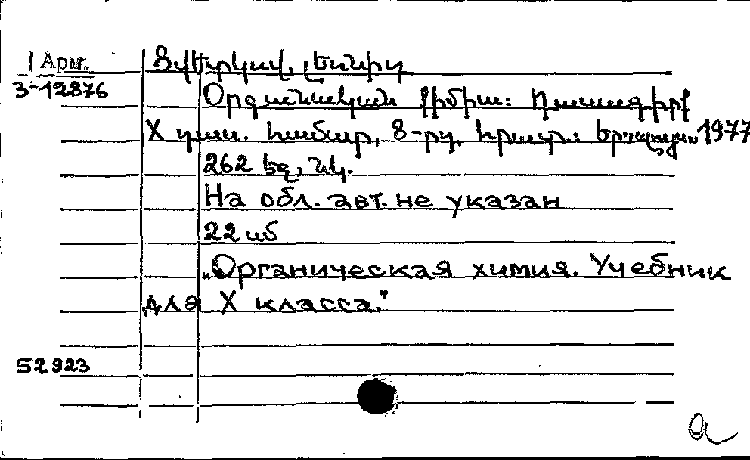 Арм.
3-12876
Ցվետկով, Լեոնիդ
Օրգանական քիմիա: Դասագիրք
X դաս. համար, 8-րդ. հրատ.: Երևան 1977
262 եջ, նկ.
На обл. авт. не указан
22 սմ
„Органическая химия. Учебник
для X класса."
52923
a